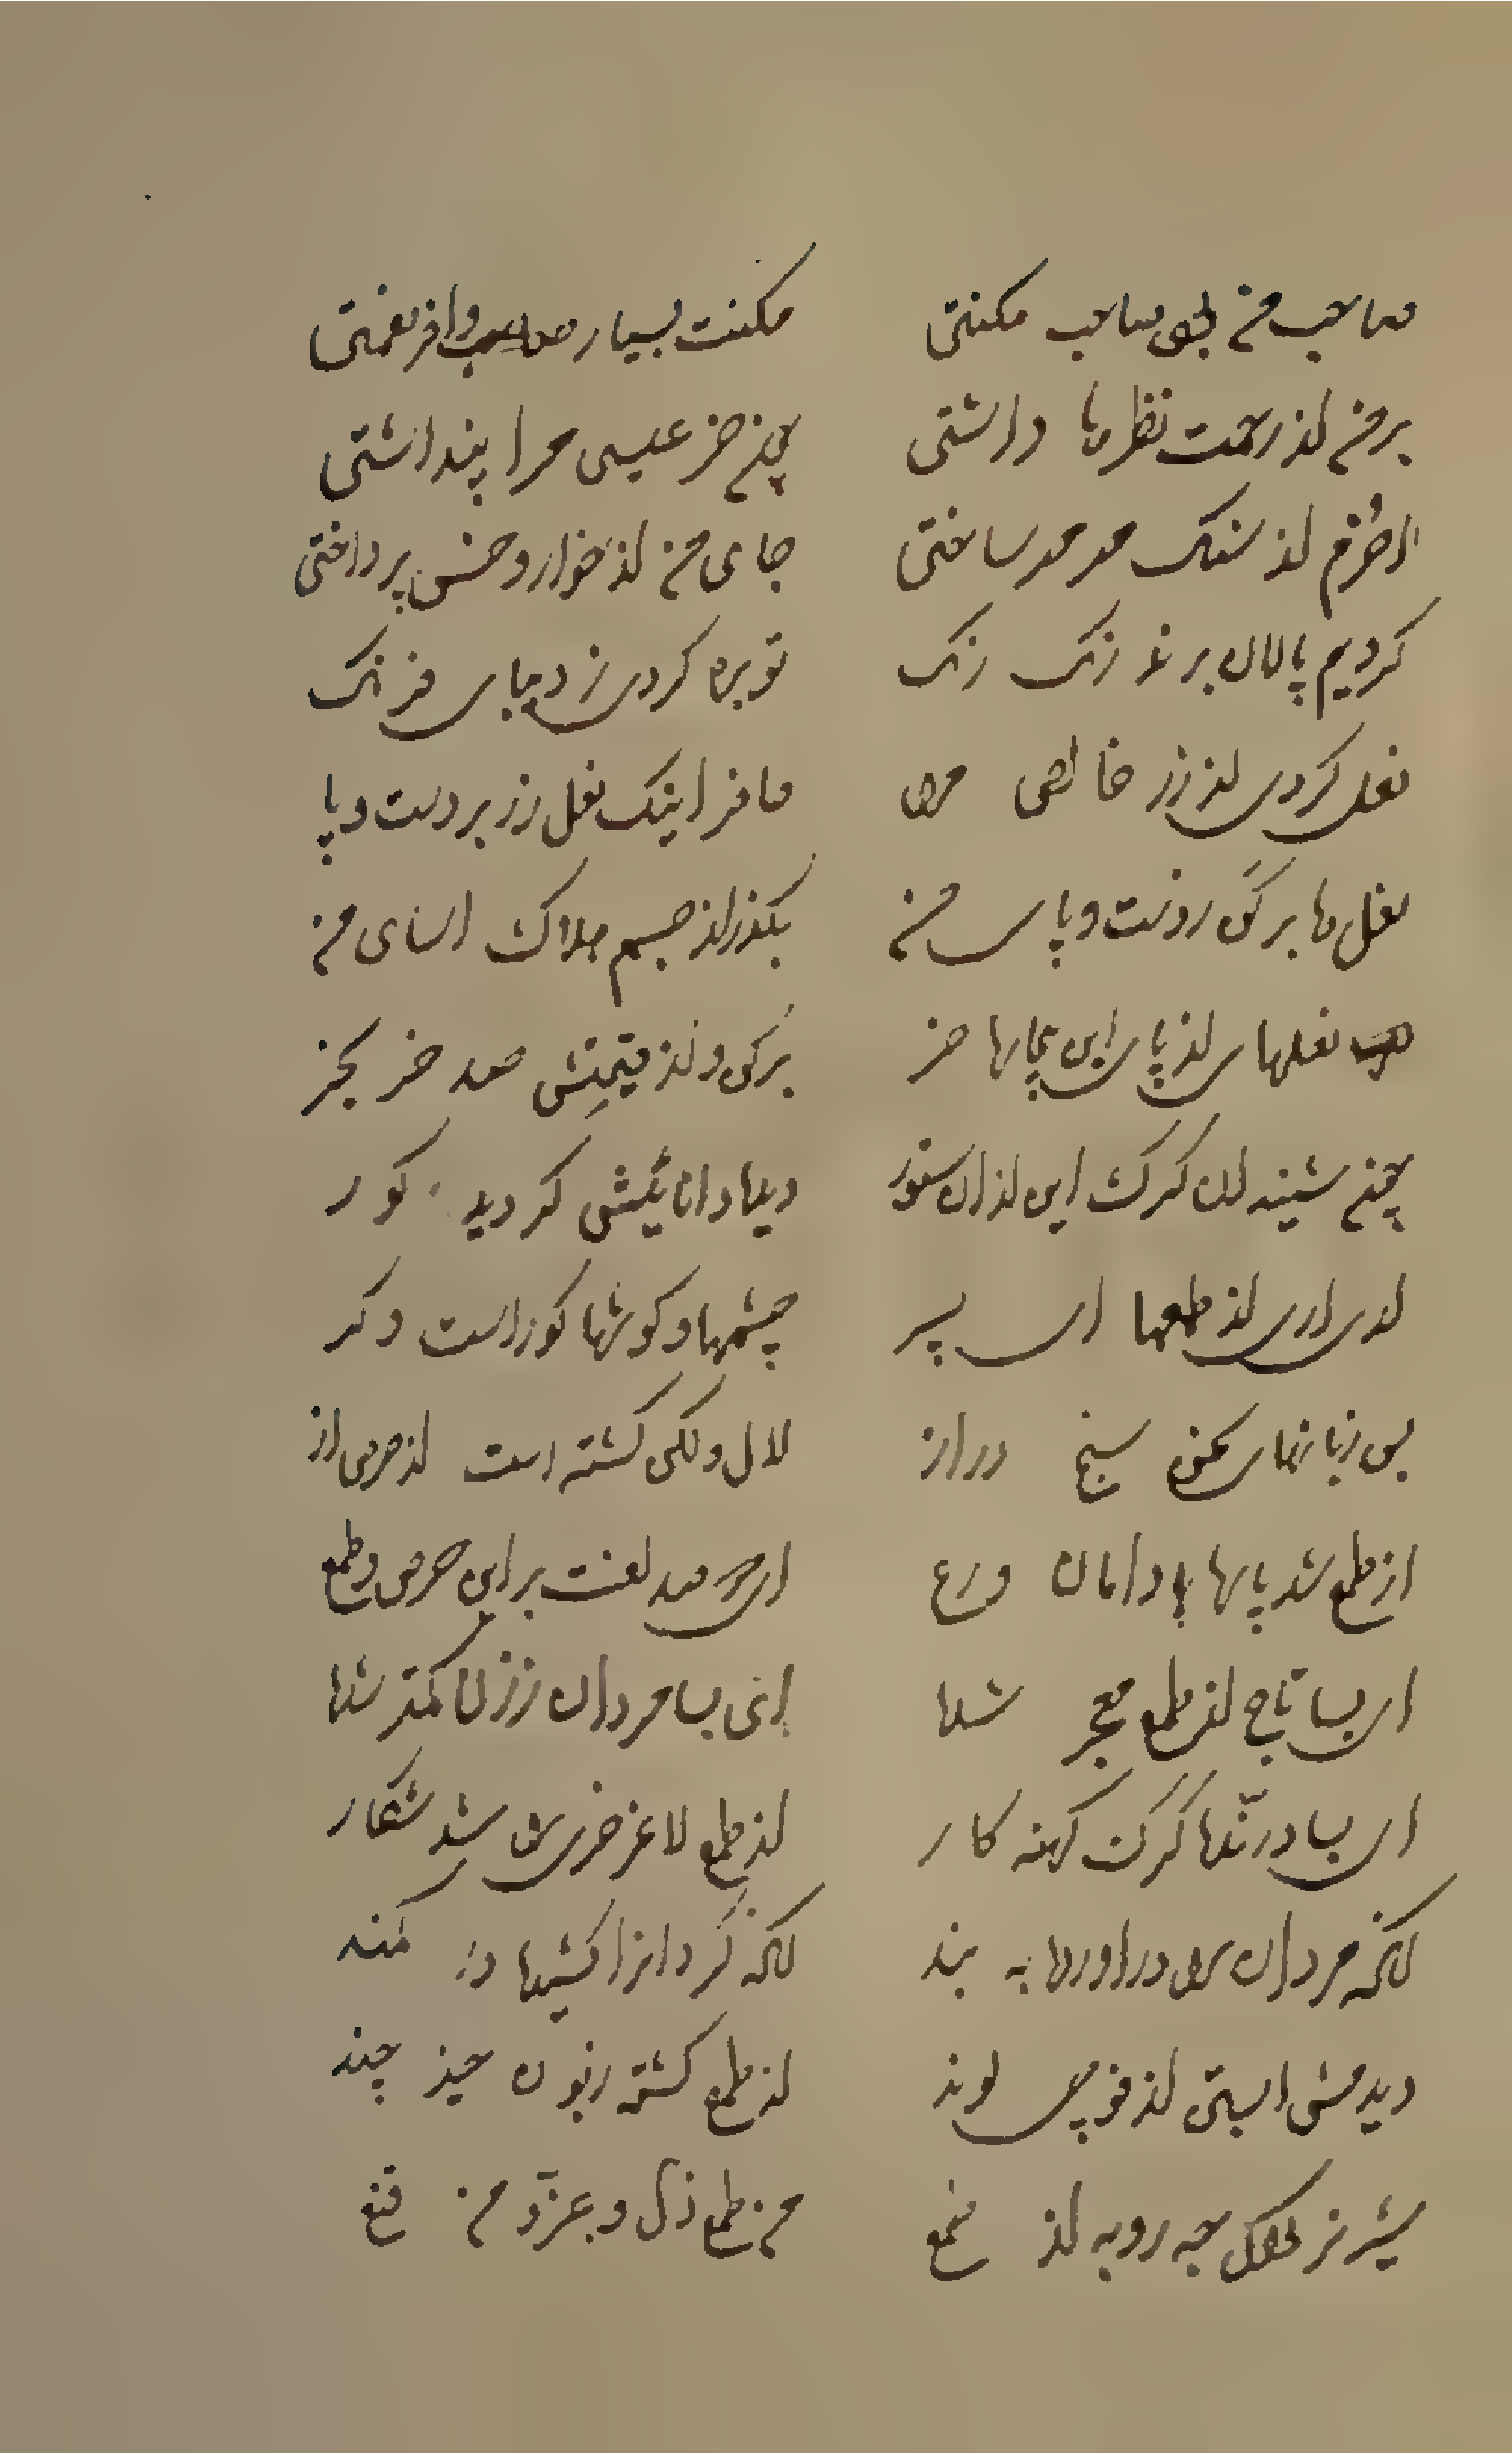 صاحب من بود صاحب مکنتی مکنت بسیار وافر نعمتی
بر من از رحمت نظرها داشتی چون خر عیسی مرا پنداشتی
آخورم از سنک مرمر ساختی جای من از خوار و خس پرداختی
کردیم پالان برند رنک رنک توبره کردی ز دیبای فرنک
نعل کردی از زر خالص مرا ها خر اینک نعل زر بر دست و پا
نعل ها برکن ز دست و پای من بکذر از جسم هلاک آسای من
نعلهای از پای این بیچاره خر برکن و از قیمتش صد خر بخر
چون شنید آن کرک این از آن ستور دیده دانائیش کردید کور
آری آری از طمعها ای پسر چشمها و کوشها کور است و کر
بس زبانهای سخن سنج دراز لال و لکن کشته است از حرص و آز
از طمع شد پاره پا دامان ورع ای دو صد لعنت بر این حرص و طمع
ای بسا تاج از طمع معجر شده ای بسا مردان ز زن کمتر شده
ای بسا درنده کرک کهنه کار از طمع لاغر خری را شد شکار
آنکه مردان را در آورده به بند آنکه کردانرا کشیده در کمند
دیدمش استی از فوجی لوند از طمع کشته زبون حیز چند
شیر نر چبود چه روبه از طمع من طمع ذل و عز من قنع